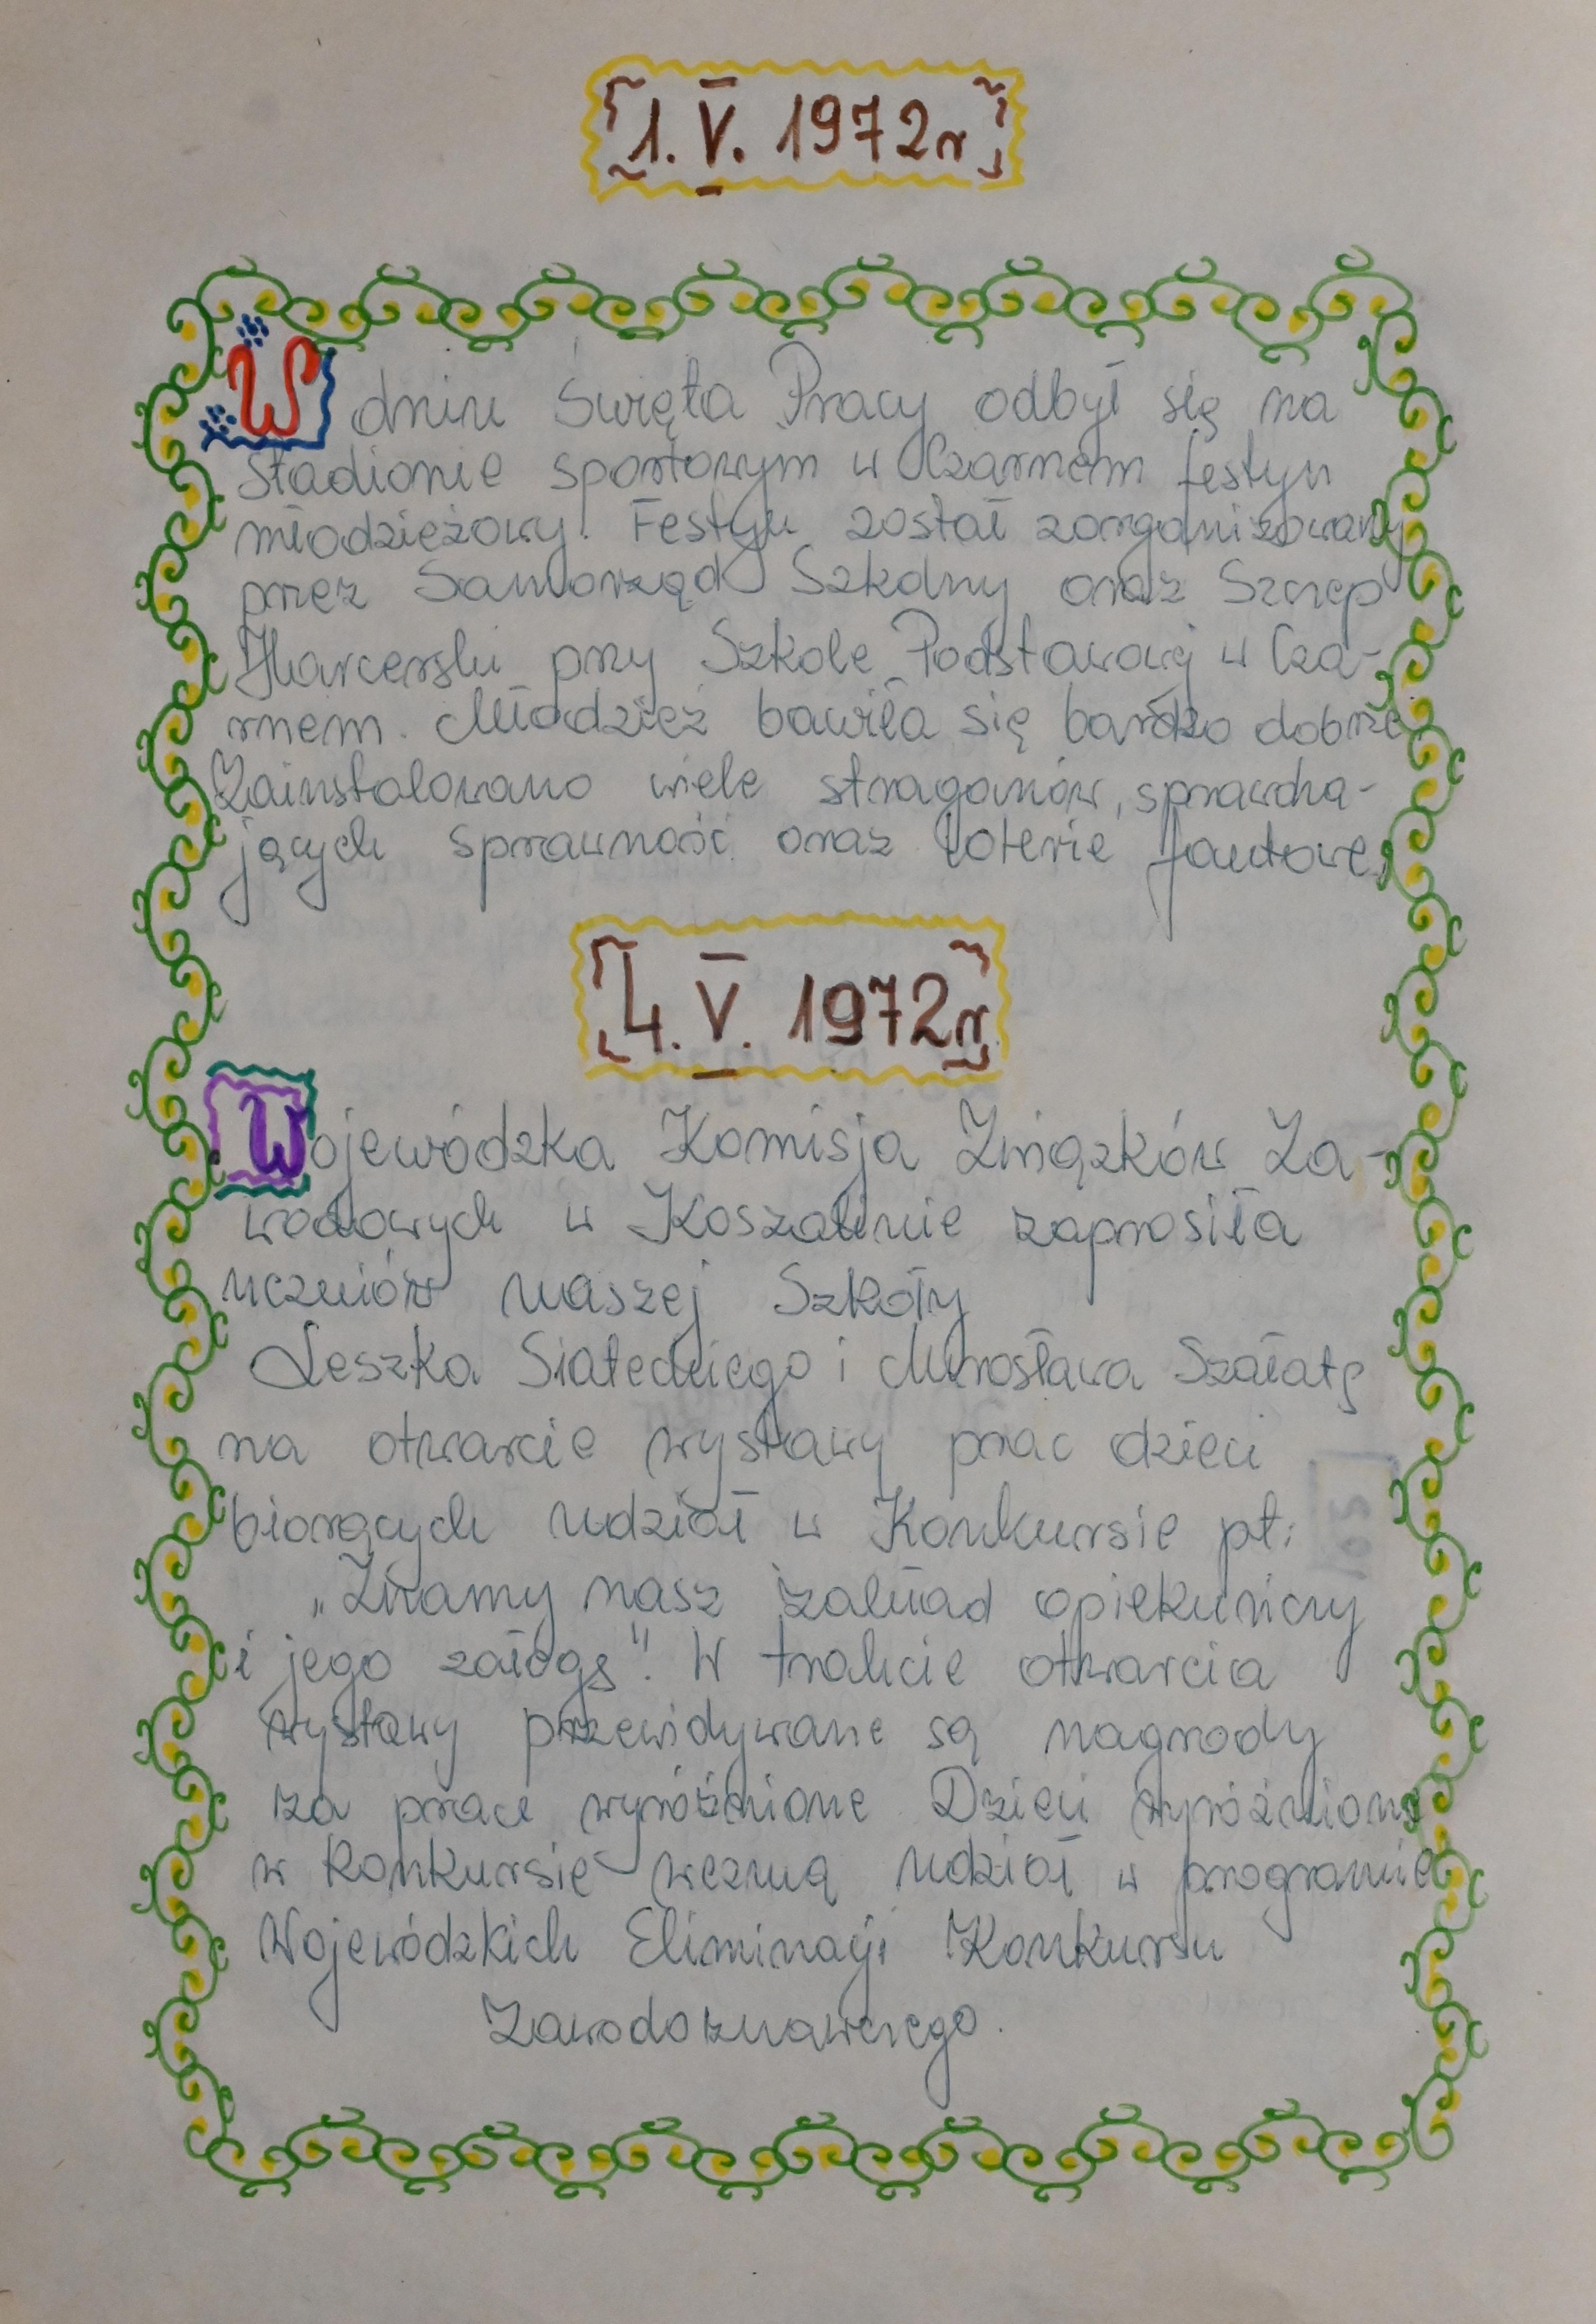 1. V. 1972r
W dniu Święta Pracy odbył się na
stadionie sportowym w Czarnem festyn
młodzieżowy. Festyn został zorganizowany
przez Samorząd Szkolny oraz Szczep
Harcerski przy Szkole Podstawowej w Cza-
rnem. Młodzież bawiła się bardzo dobrze.
Zainstalowano wiele straganów, sprawdza-
jących sprawność oraz loterie fantowe.
4. V. 1972r.
Wojewódzka Komisja Związków Za-
wodowych w Koszalinie zaprosiła
uczniów naszej Szkoły
Leszka Siateckiego i Mirosława Szałatę
na otwarcie wystawy prac dzieci
biorących udział w Konkursie pt:
„Znamy nasz zakład opiekuńczy
i jego załogę". W trakcie otwarcia
wystawy przewidywane są nagrody
za prace wyróżnione. Dzieci wyróżnione
w konkursie wezmą udział w programie
Wojewódzkich Eliminacji Konkursu
Zawodoznawczego.